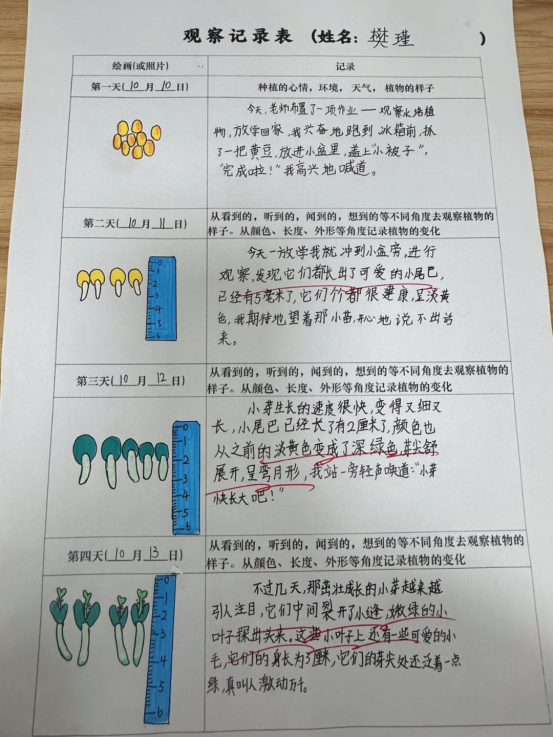 观察记录表 (姓名: 樊瑾 )
绘画(或照片)
记录
第一天( 10 月 10 日)
种植的心情, 环境, 天气, 植物的样子
今天,老师布置了一项作业 — 观察水培植
物,放学回家,我兴奋地跑到冰箱前,抓
了一把黄豆,放进小盆里,盖上“小被子”,
“完成啦!”我高兴地喊道。
第二天( 10 月 11 日)
从看到的,听到的,闻到的,想到的等不同角度去观察植物的
样子。从颜色、长度、外形等角度记录植物的变化
今天一放学我就冲到小盆旁,进行
观察,发现它们都长出了可爱的小尾巴,
已经有5毫米了,它们都很健康,呈淡黄
色,我期待地望着那小苗,开心地说不出话
来。
0
1
2
3
4
5
6
第三天( 10 月 12 日)
从看到的,听到的,闻到的,想到的等不同角度去观察植物的
样子。从颜色、长度、外形等角度记录植物的变化
小芽生长的速度很快,变得又细又
长,小尾巴已经长了有2厘米了,颜色也
从之前的淡黄色变成了深绿色,芽尖舒
展开,呈弯月形,我站一旁轻声喊道:“小芽
快长大吧!”
0
1
2
3
4
5
6
第四天( 10 月 13 日)
从看到的,听到的,闻到的,想到的等不同角度去观察植物的
样子。从颜色、长度、外形等角度记录植物的变化
不过几天,那茁壮成长的小芽越来越
引人注目,它们中间裂开了小缝,嫩绿的小
叶子探出头来。这些小叶子上还有一些可爱的小
毛,它们的身长为5厘米,它们的芽尖处还泛着一点
绿,真叫人激动万千。
0
1
2
3
4
5
6